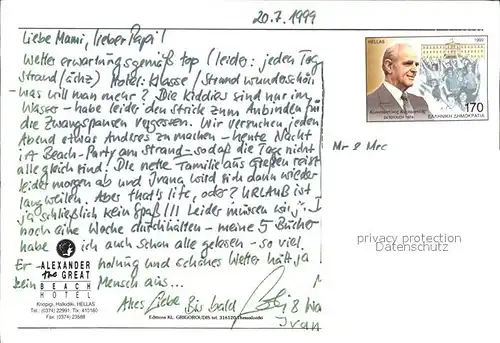 20.7.1999
Liebe Mami, lieber Papi!
Wetter erwartungsgemäß top (leider: jeden Tag
Strand/ächz) Hotel: Klasse / Strand wunderschön
- was will man mehr? Die Kiddies sind nur im
Wasser - habe leider den Strick zum Anbinden für
die Zwangspausen vergessen. Wir versuchen jeden
Abend etwas Anderes zu machen - heute Nacht
ist Beach-Party am Strand - sodaß die Tage nicht
alle gleich sind! Die nette Familie aus Gießen reist
leider morgen ab und Ivana wird sich dann wieder
langweilen. Aber that's life, oder? URLAUB ist
ja schließlich kein Spaß!!! Leider müssen wir
noch eine Woche durchhalten - meine 5 Bücher
habe ich auch schon alle gelesen - so viel
Erholung und schönes Wetter hält ja
kein Mensch aus...
Alles Liebe Bis bald
&
Ivan
HELLAS
1999
170
ΕΛΛΗΝΙΚΗ ΔΗΜΟΚΡΑΤΙΑ
Mr & Mrc
privacy protection
Datenschutz
ALEXANDER
the GREAT
BEACH
HOTEL
Kriopigi, Halkidiki, HELLAS
Tel.: (0374) 22991, Tlx: 410160
Fax: (0374) 23588
Editions KL. GRIGOROUDIS tel. 316120 Thessaloniki